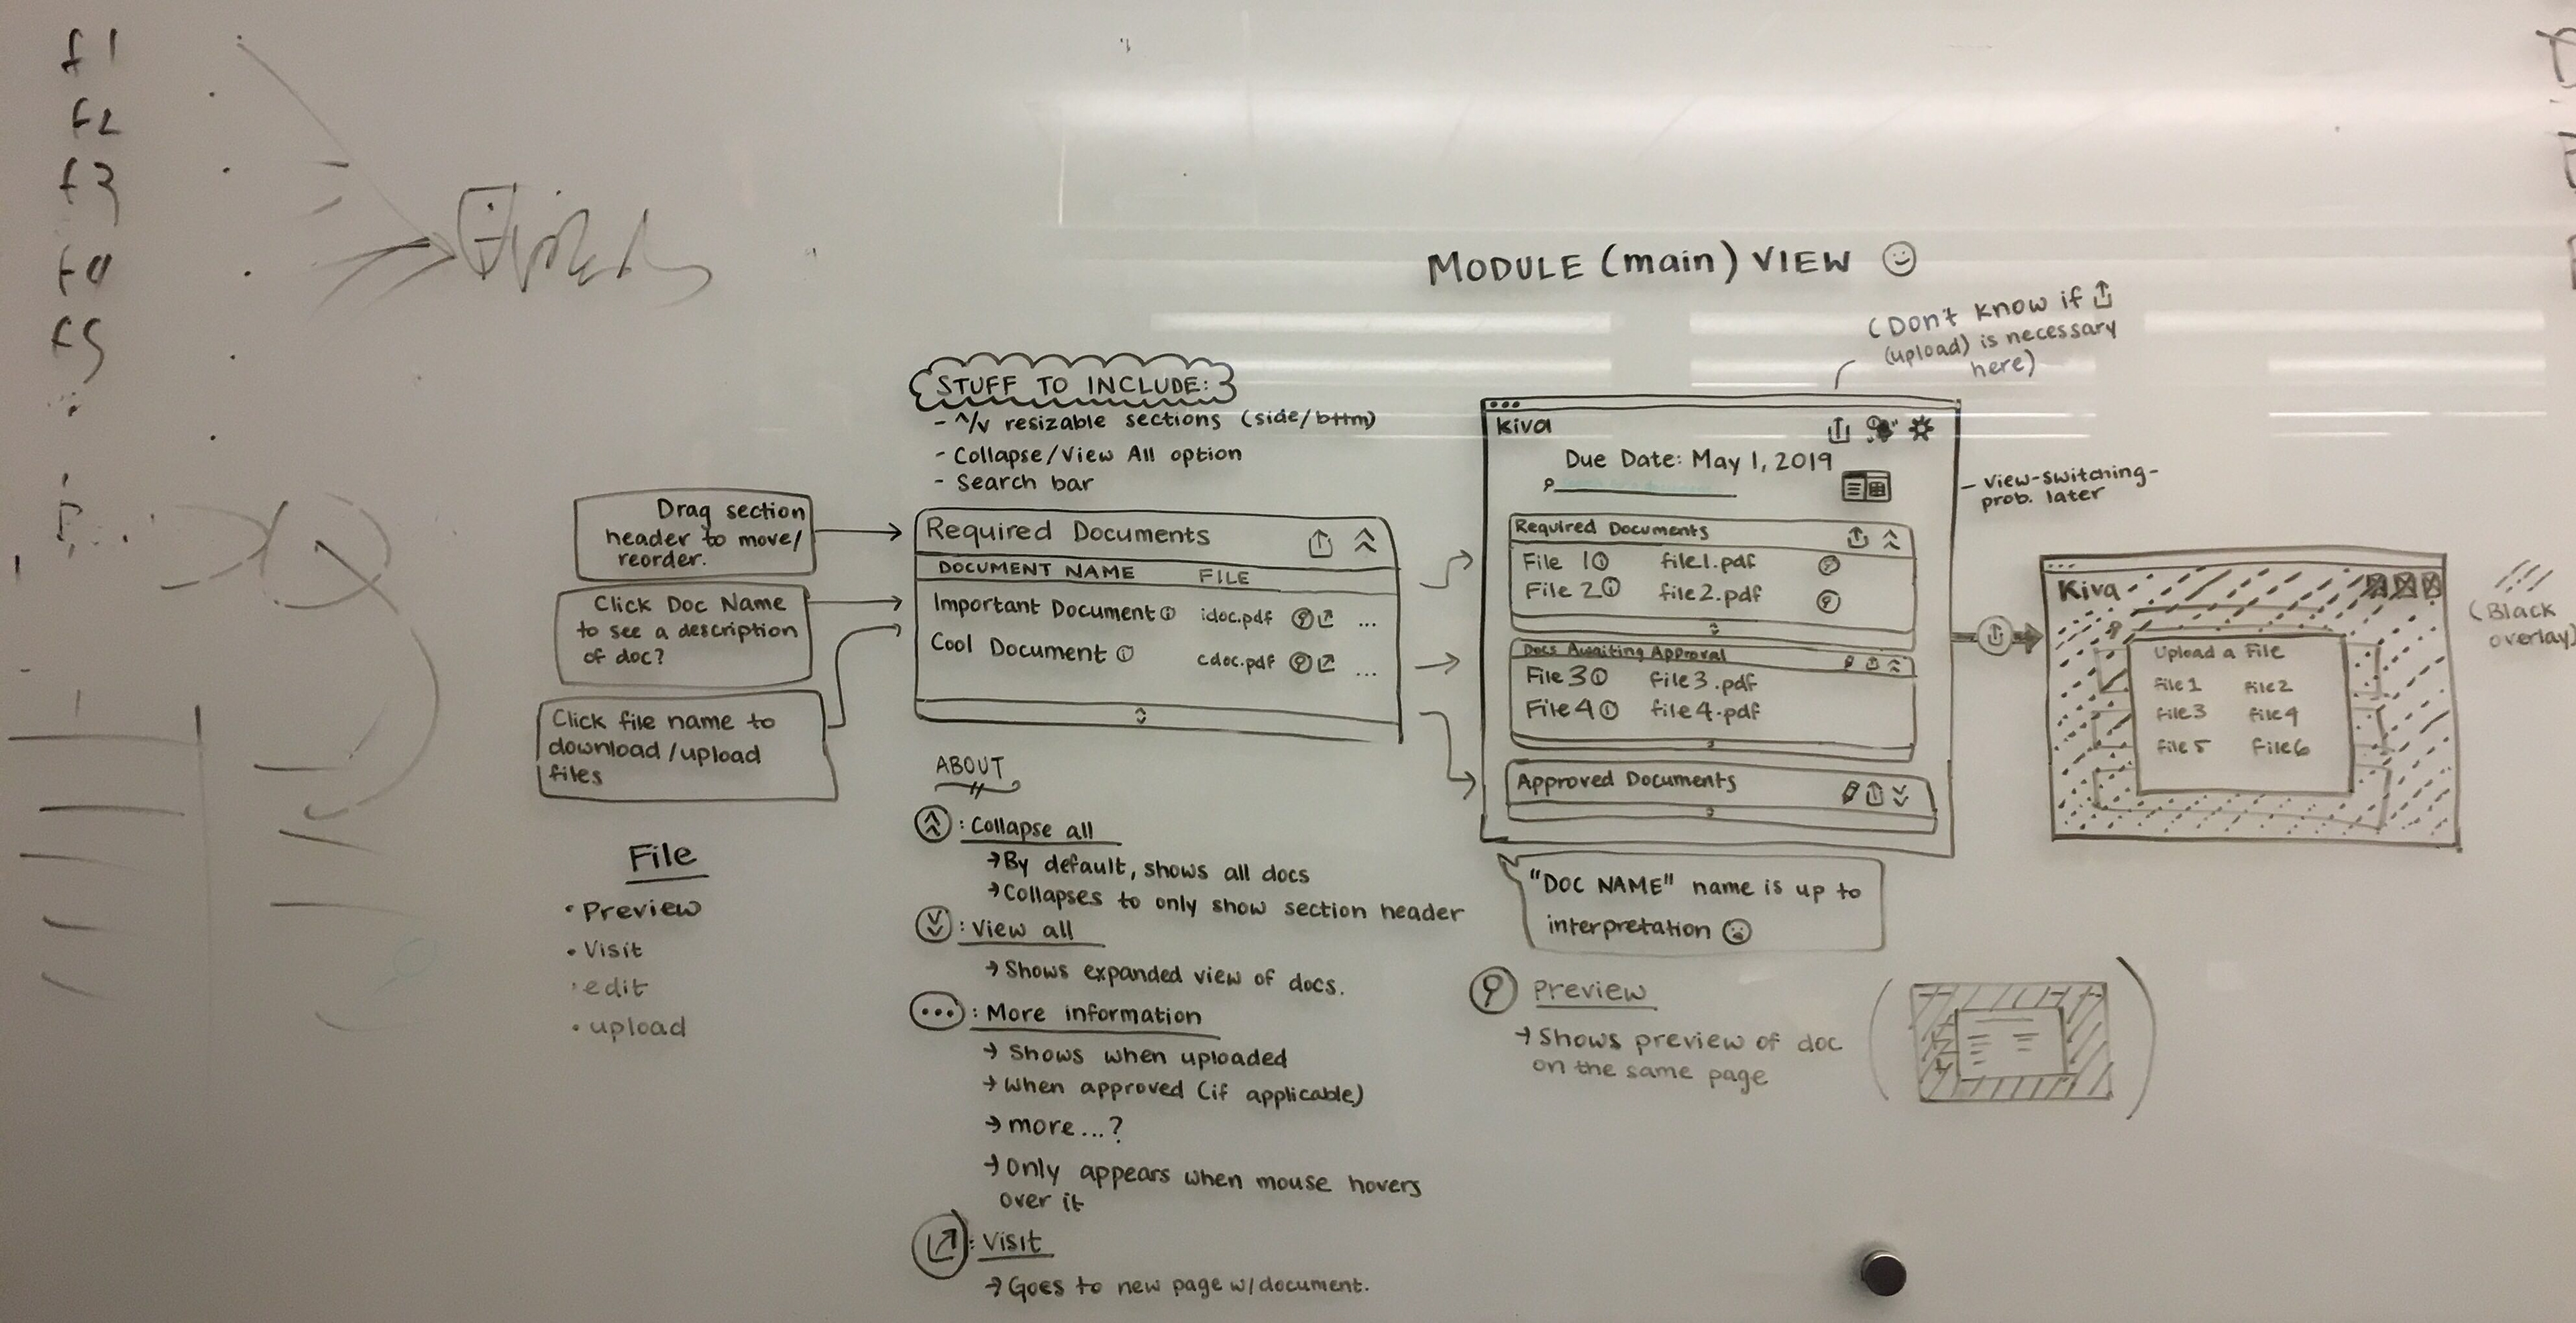 f1
f2
f3
f4
f5
MODULE (main) VIEW
(Don't know if
(upload) is necessary
here)
STUFF TO INCLUDE:
- ^/v resizable sections (side/bttm)
- Collapse/View All option
- Search bar
Drag section
header to move/
reorder.
Click Doc Name
to see a description
of doc?
Click file name to
download/upload
files
File
• Preview
• Visit
• edit
• upload
Required Documents
DOCUMENT NAME FILE
Important Document idoc.pdf ...
Cool Document cdoc.pdf ...
ABOUT
: Collapse all
→ By default, shows all docs
→ Collapses to only show section header
: View all
→ Shows expanded view of docs.
: More information
→ Shows when uploaded
→ When approved (if applicable)
→ more...?
→ Only appears when mouse hovers
over it
: Visit
→ Goes to new page w/document.
Kiva
Due Date: May 1, 2019
- View-switching-
prob. later
Required Documents
File 1 file1.pdf
File 2 file2.pdf
Docs Awaiting Approval
File 3 file3.pdf
File 4 file4.pdf
Approved Documents
"DOC NAME" name is up to
interpretation
Preview
→ Shows preview of doc
on the same page
Kiva
Upload a File
File1 File2
File3 File4
File5 File6
(Black
overlay)